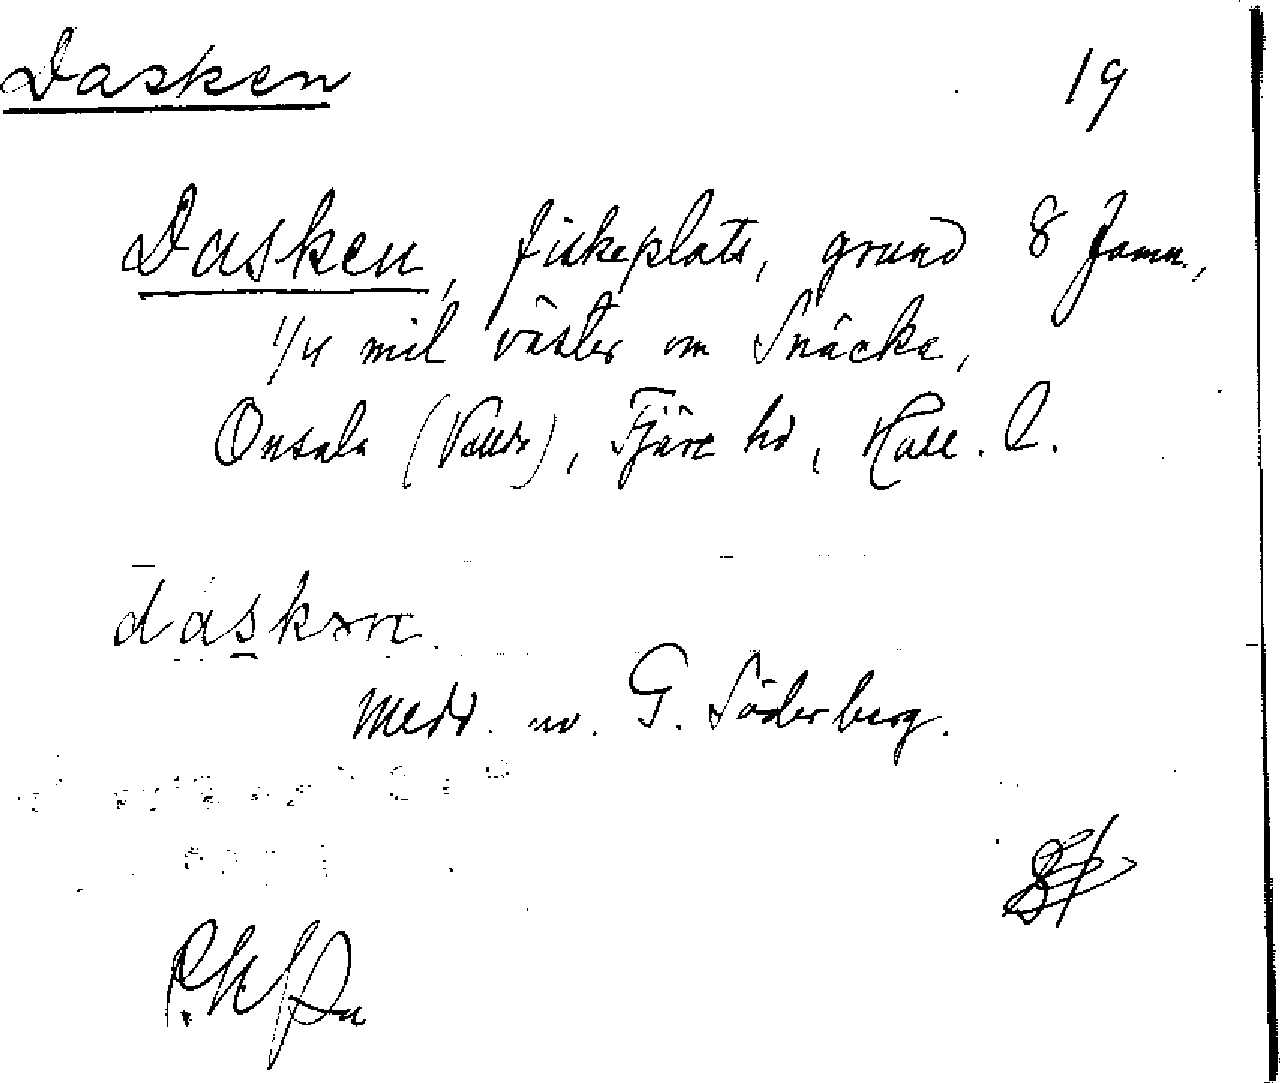 Dasken 19
Dasken, fiskeplats, grund 8 famn.,
1/4 mil väster om Snäcke,
Onsala (Vallda), Fjäre hd, Hall. l.
daskən
Medd. av. G. Söderberg.